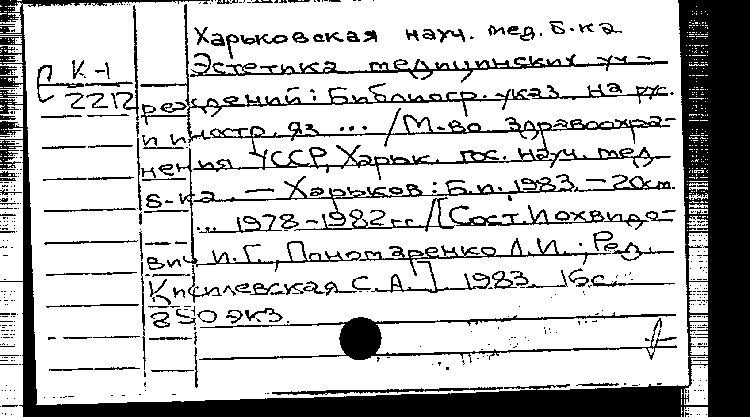 Харьковская науч. мед. б-ка
К-1
2212
Эстетика медицинских уч-
реждений: Библиогр. указ. на рус.
и иностр. яз ... / М-во здравоохра-
нения УССР, Харьк. гос. науч. мед.
б-ка. — Харьков: Б.и., 1983. – 20см
... 1978-1982гг /[Сост. Иохвидо-
вич И.Г., Пономаренко Л.И.; Ред.
Кисилевская С.А.] 1983. 16с.
850 экз.